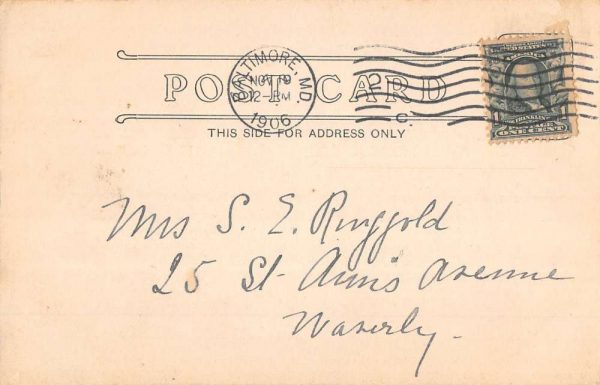 BALTIMORE, MD.
NOV 19
12-PM
1906
2
C.
POST CARD
THIS SIDE FOR ADDRESS ONLY
FRANKLIN
ONE CENT
Mrs S. E. Ringgold
25 St. Ann's Avenue
Waverly.